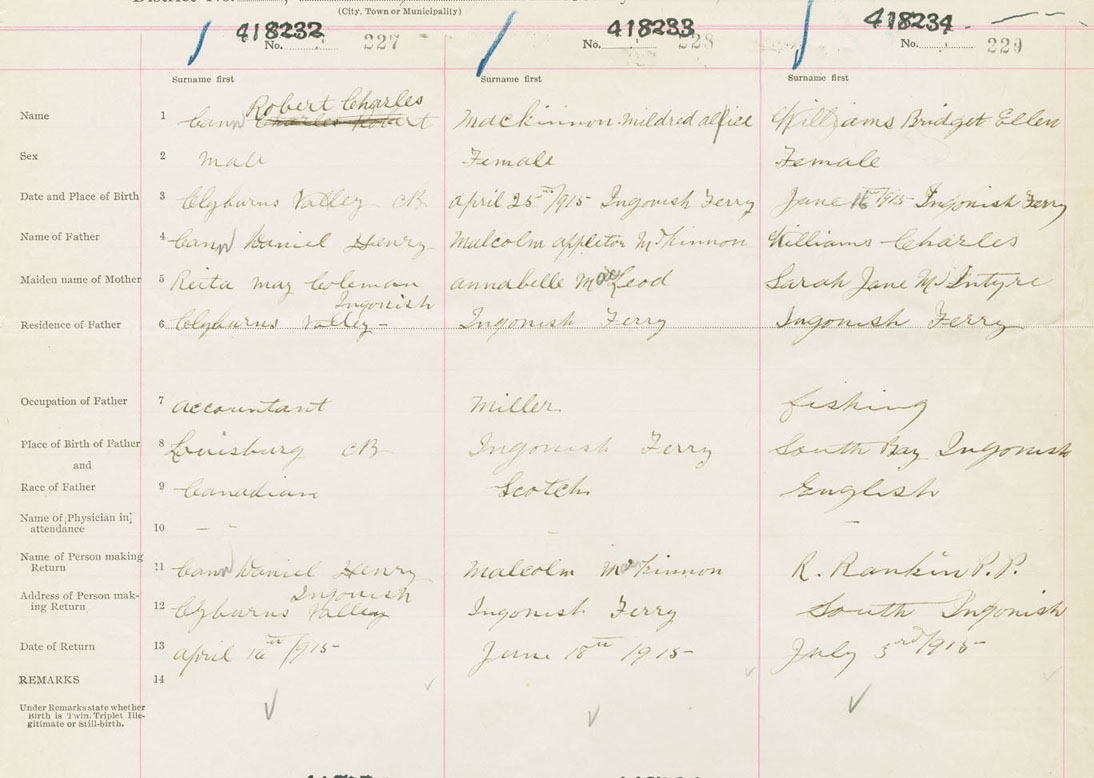 (City, Town or Municipality)
418232 418233 418234
No. 227 No. 228 No. 229
Surname first Surname first Surname first
Robert Charles
Name 1 Cann Charles Robert Mackinnon Mildred allice Williams Bridget Ellen
Sex 2 Male Female Female
Date and Place of Birth 3 Clyburns Valley CB april 25th/1915 Ingonish Ferry June 16th 1915 Ingonish Ferry
Name of Father 4 Cann Daniel Henry Malcolm appleton McKinnon Williams Charles
Maiden name of Mother 5 Reita may Coleman annabelle MacLeod Sarah Jane McIntyre
Ingonish
Residence of Father 6 Clyburns Valley - Ingonish Ferry Ingonish Ferry
Occupation of Father 7 accountant Miller fishing
Place of Birth of Father 8 Louisburg CB Ingonish Ferry South Bay Ingonish
and
Race of Father 9 Canadian Scotch English
Name of [Physician in]
attendance 10 — — —
Name of Person making
Return 11 Cann Daniel Henry Malcolm MacKinnon R. Rankin P.P.
Address of Person mak- Ingonish
ing Return 12 Clyburns Valley Ingonish Ferry South Ingonish
Date of Return 13 april 16th/1915 June 18th 1915 July 3rd/1915
REMARKS 14
Under Remarks state whether
Birth is Twin, Triplet Ille-
gitimate or Still-birth.